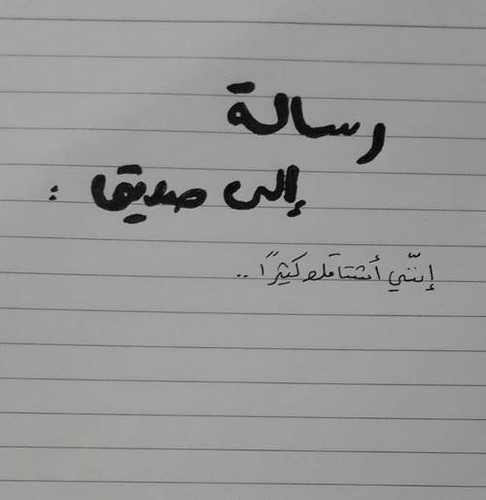 رسالة
إلى صديق :
إنّني أشتاقك كثيرًا ..